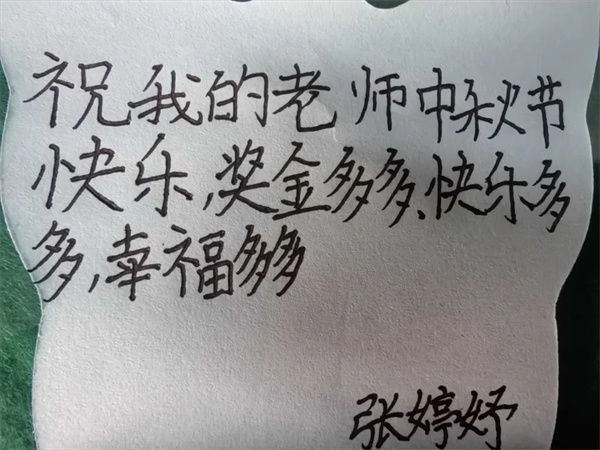 祝我的老师中秋节
快乐,奖金多多、快乐多
多,幸福多多
张婷妤